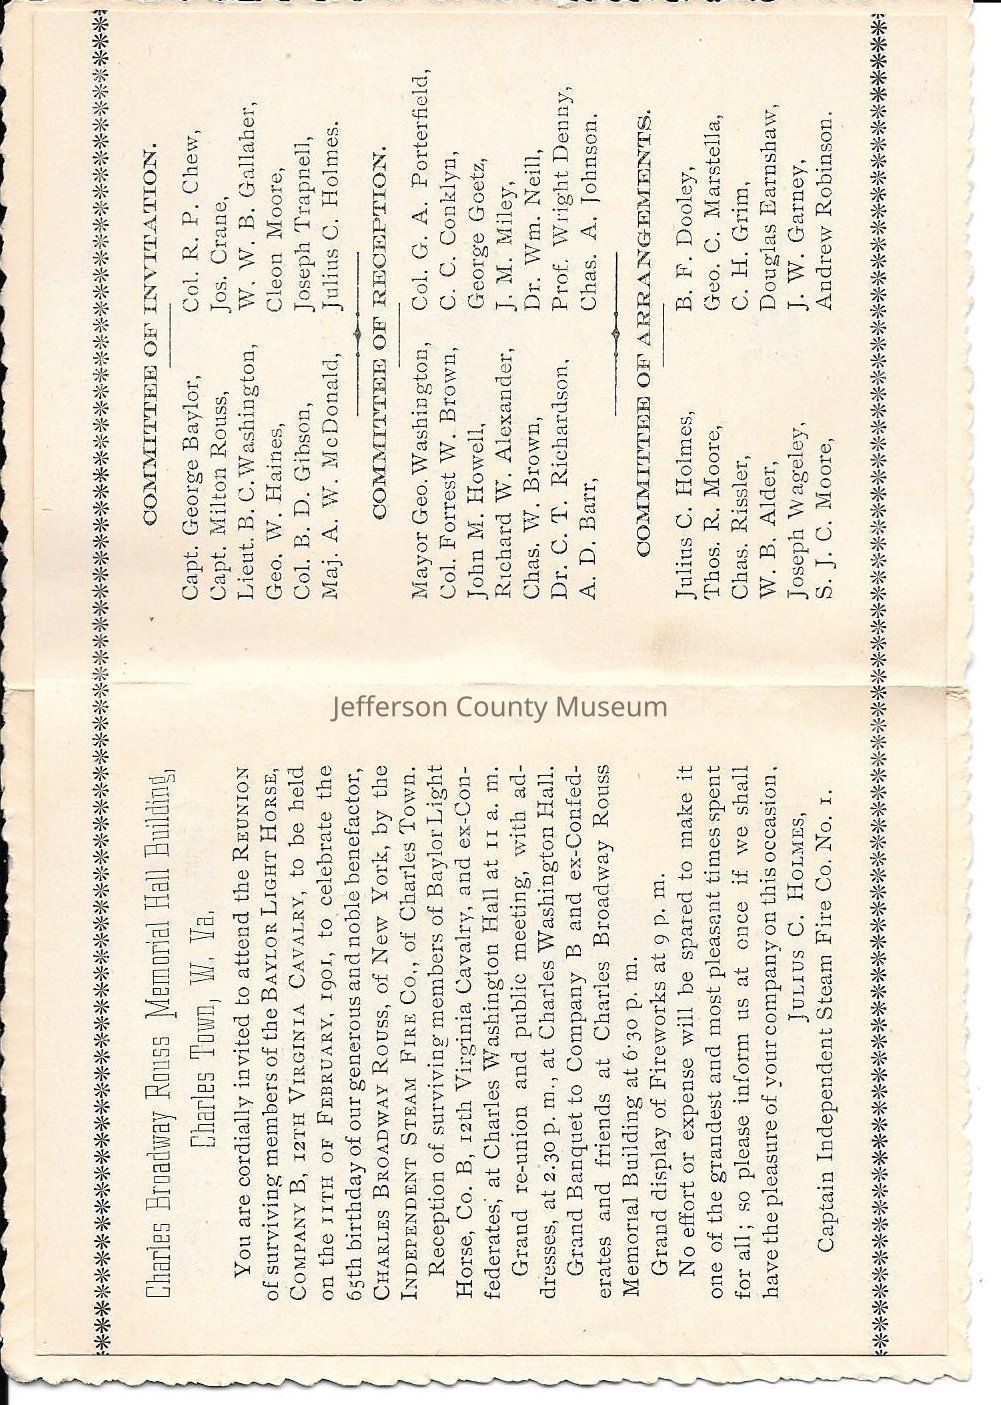 Charles Broadway Rouss Memorial Hall Building,
Charles Town, W. Va.
You are cordially invited to attend the REUNION
of surviving members of the BAYLOR LIGHT HORSE,
COMPANY B, 12TH VIRGINIA CAVALRY, to be held
on the 11TH OF FEBRUARY, 1901, to celebrate the
65th birthday of our generous and noble benefactor,
CHARLES BROADWAY ROUSS, of New York, by the
INDEPENDENT STEAM FIRE CO., of Charles Town.
Reception of surviving members of Baylor Light
Horse, Co. B, 12th Virginia Cavalry, and ex-Con-
federates, at Charles Washington Hall at 11 a. m.
Grand re-union and public meeting, with ad-
dresses, at 2.30 p. m., at Charles Washington Hall.
Grand Banquet to Company B and ex-Confed-
erates and friends at Charles Broadway Rouss
Memorial Building at 6.30 p. m.
Grand display of Fireworks at 9 p. m.
No effort or expense will be spared to make it
one of the grandest and most pleasant times spent
for all; so please inform us at once if we shall
have the pleasure of your company on this occasion.
JULIUS C. HOLMES,
Captain Independent Steam Fire Co. No. 1.
COMMITTEE OF INVITATION.
Capt. George Baylor, Col. R. P. Chew,
Capt. Milton Rouss, Jos. Crane,
Lieut. B. C. Washington, W. W. B. Gallaher,
Geo. W. Haines, Cleon Moore,
Col. B. D. Gibson, Joseph Trapnell,
Maj. A. W. McDonald, Julius C. Holmes.
COMMITTEE OF RECEPTION.
Mayor Geo. Washington, Col. G. A. Porterfield,
Col. Forrest W. Brown, C. C. Conklyn,
John M. Howell, George Goetz,
Richard W. Alexander, J. M. Miley,
Chas. W. Brown, Dr. Wm. Neill,
Dr. C. T. Richardson, Prof. Wright Denny,
A. D. Barr, Chas. A. Johnson.
COMMITTEE OF ARRANGEMENTS.
Julius C. Holmes, B. F. Dooley,
Thos. R. Moore, Geo. C. Marstella,
Chas. Rissler, C. H. Grim,
W. B. Alder, Douglas Earnshaw,
Joseph Wageley, J. W. Garney,
S. J. C. Moore, Andrew Robinson.
Jefferson County Museum